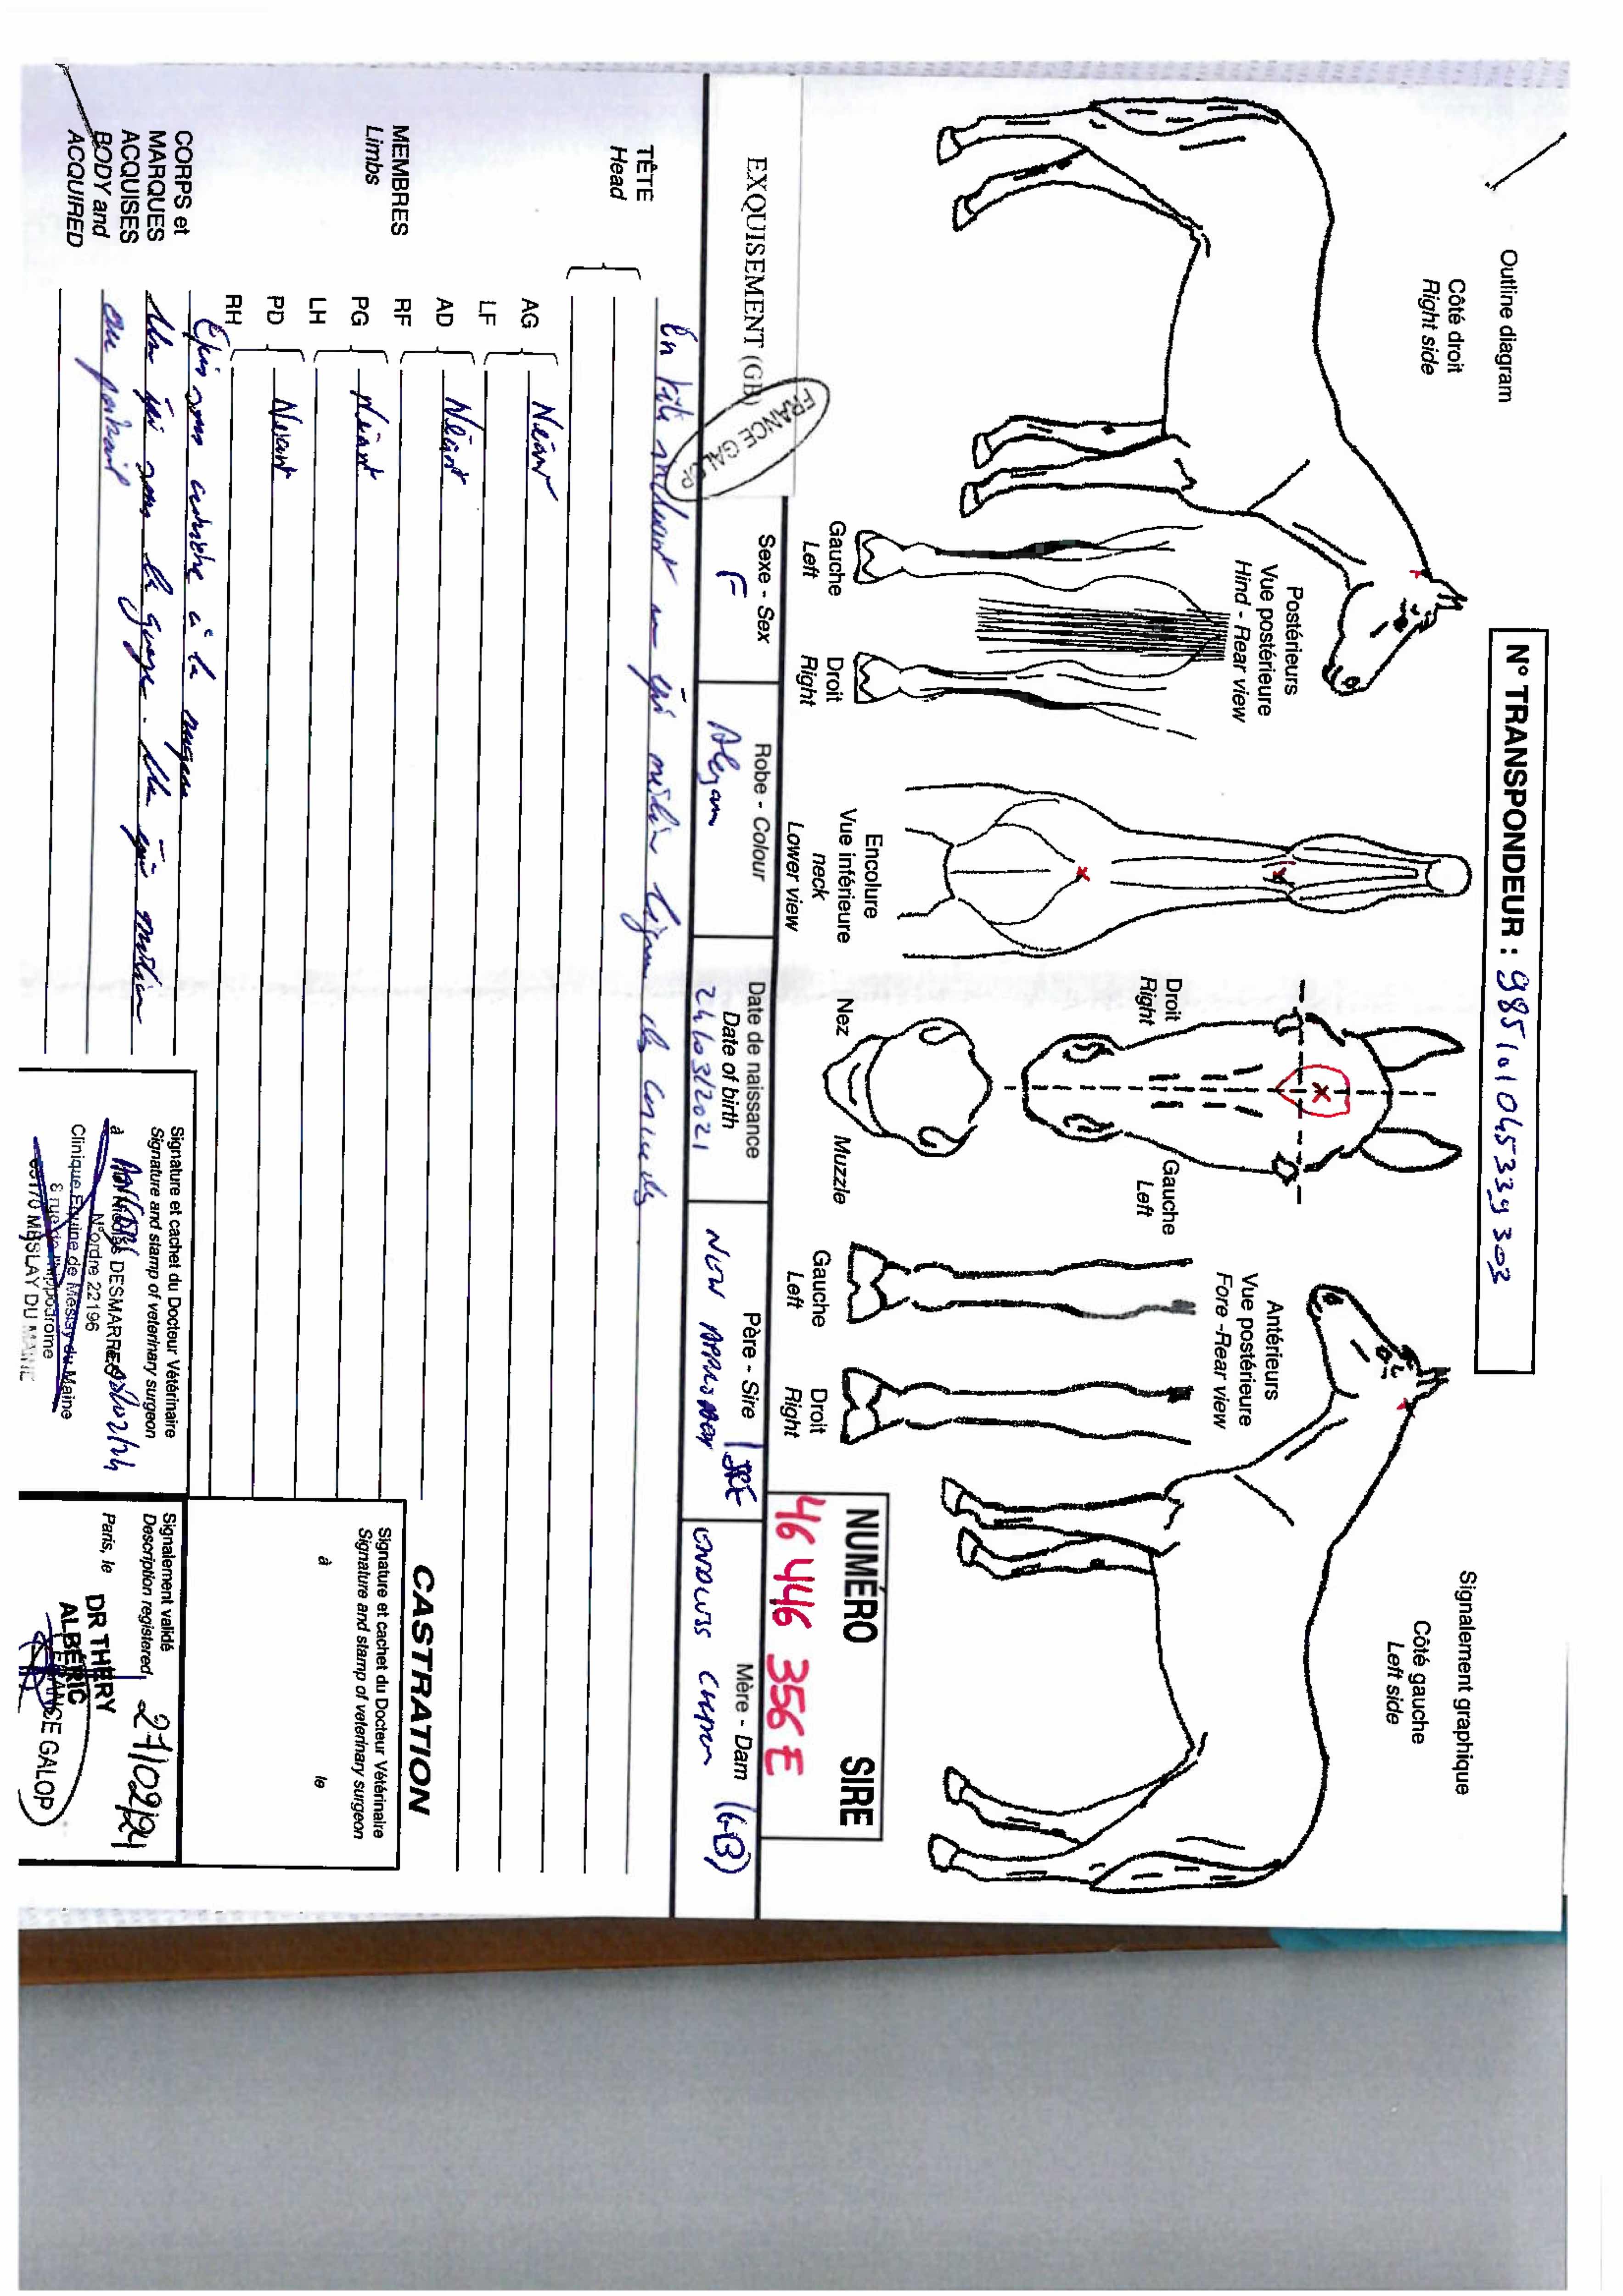 N° TRANSPONDEUR : 985101045339303
Outline diagram
Signalement graphique
Côté droit
Right side
Côté gauche
Left side
Postérieurs
Vue postérieure
Hind - Rear view
Gauche
Left
Droit
Right
Encolure
Vue inférieure
neck
Lower view
Droit
Right
Gauche
Left
Nez
Muzzle
Antérieurs
Vue postérieure
Fore -Rear view
Gauche
Left
Droit
Right
NUMÉRO SIRE
46 446 356 E
EXQUISEMENT (GB)
FRANCE GALOP
Sexe - Sex
F
Robe - Colour
Alezan
Date de naissance
Date of birth
24/03/2021
Père - Sire
IRE
Mère - Dam
(GB)
TÊTE
Head
En tête un épi médian ligne des
MEMBRES
Limbs
AG
LF
Néant
AD
RF
Néant
PG
LH
Néant
PD
RH
Néant
CORPS et
MARQUES
ACQUISES
BODY and
ACQUIRED
Epi crinière à la nuque
Un épi sous la gorge. Un épi médian
au poitrail
Signature et cachet du Docteur Vétérinaire
Signature and stamp of veterinary surgeon
à
DESMARRES
N°ordre 22196
Clinique Equine de Meslay du Maine
8 rue de l'hippodrome
53170 MESLAY DU MAINE
CASTRATION
Signature et cachet du Docteur Vétérinaire
Signature and stamp of veterinary surgeon
à le
Signalement validé
Description registered
27/02/24
Paris, le
DR THERY
ALBERIC
FRANCE GALOP